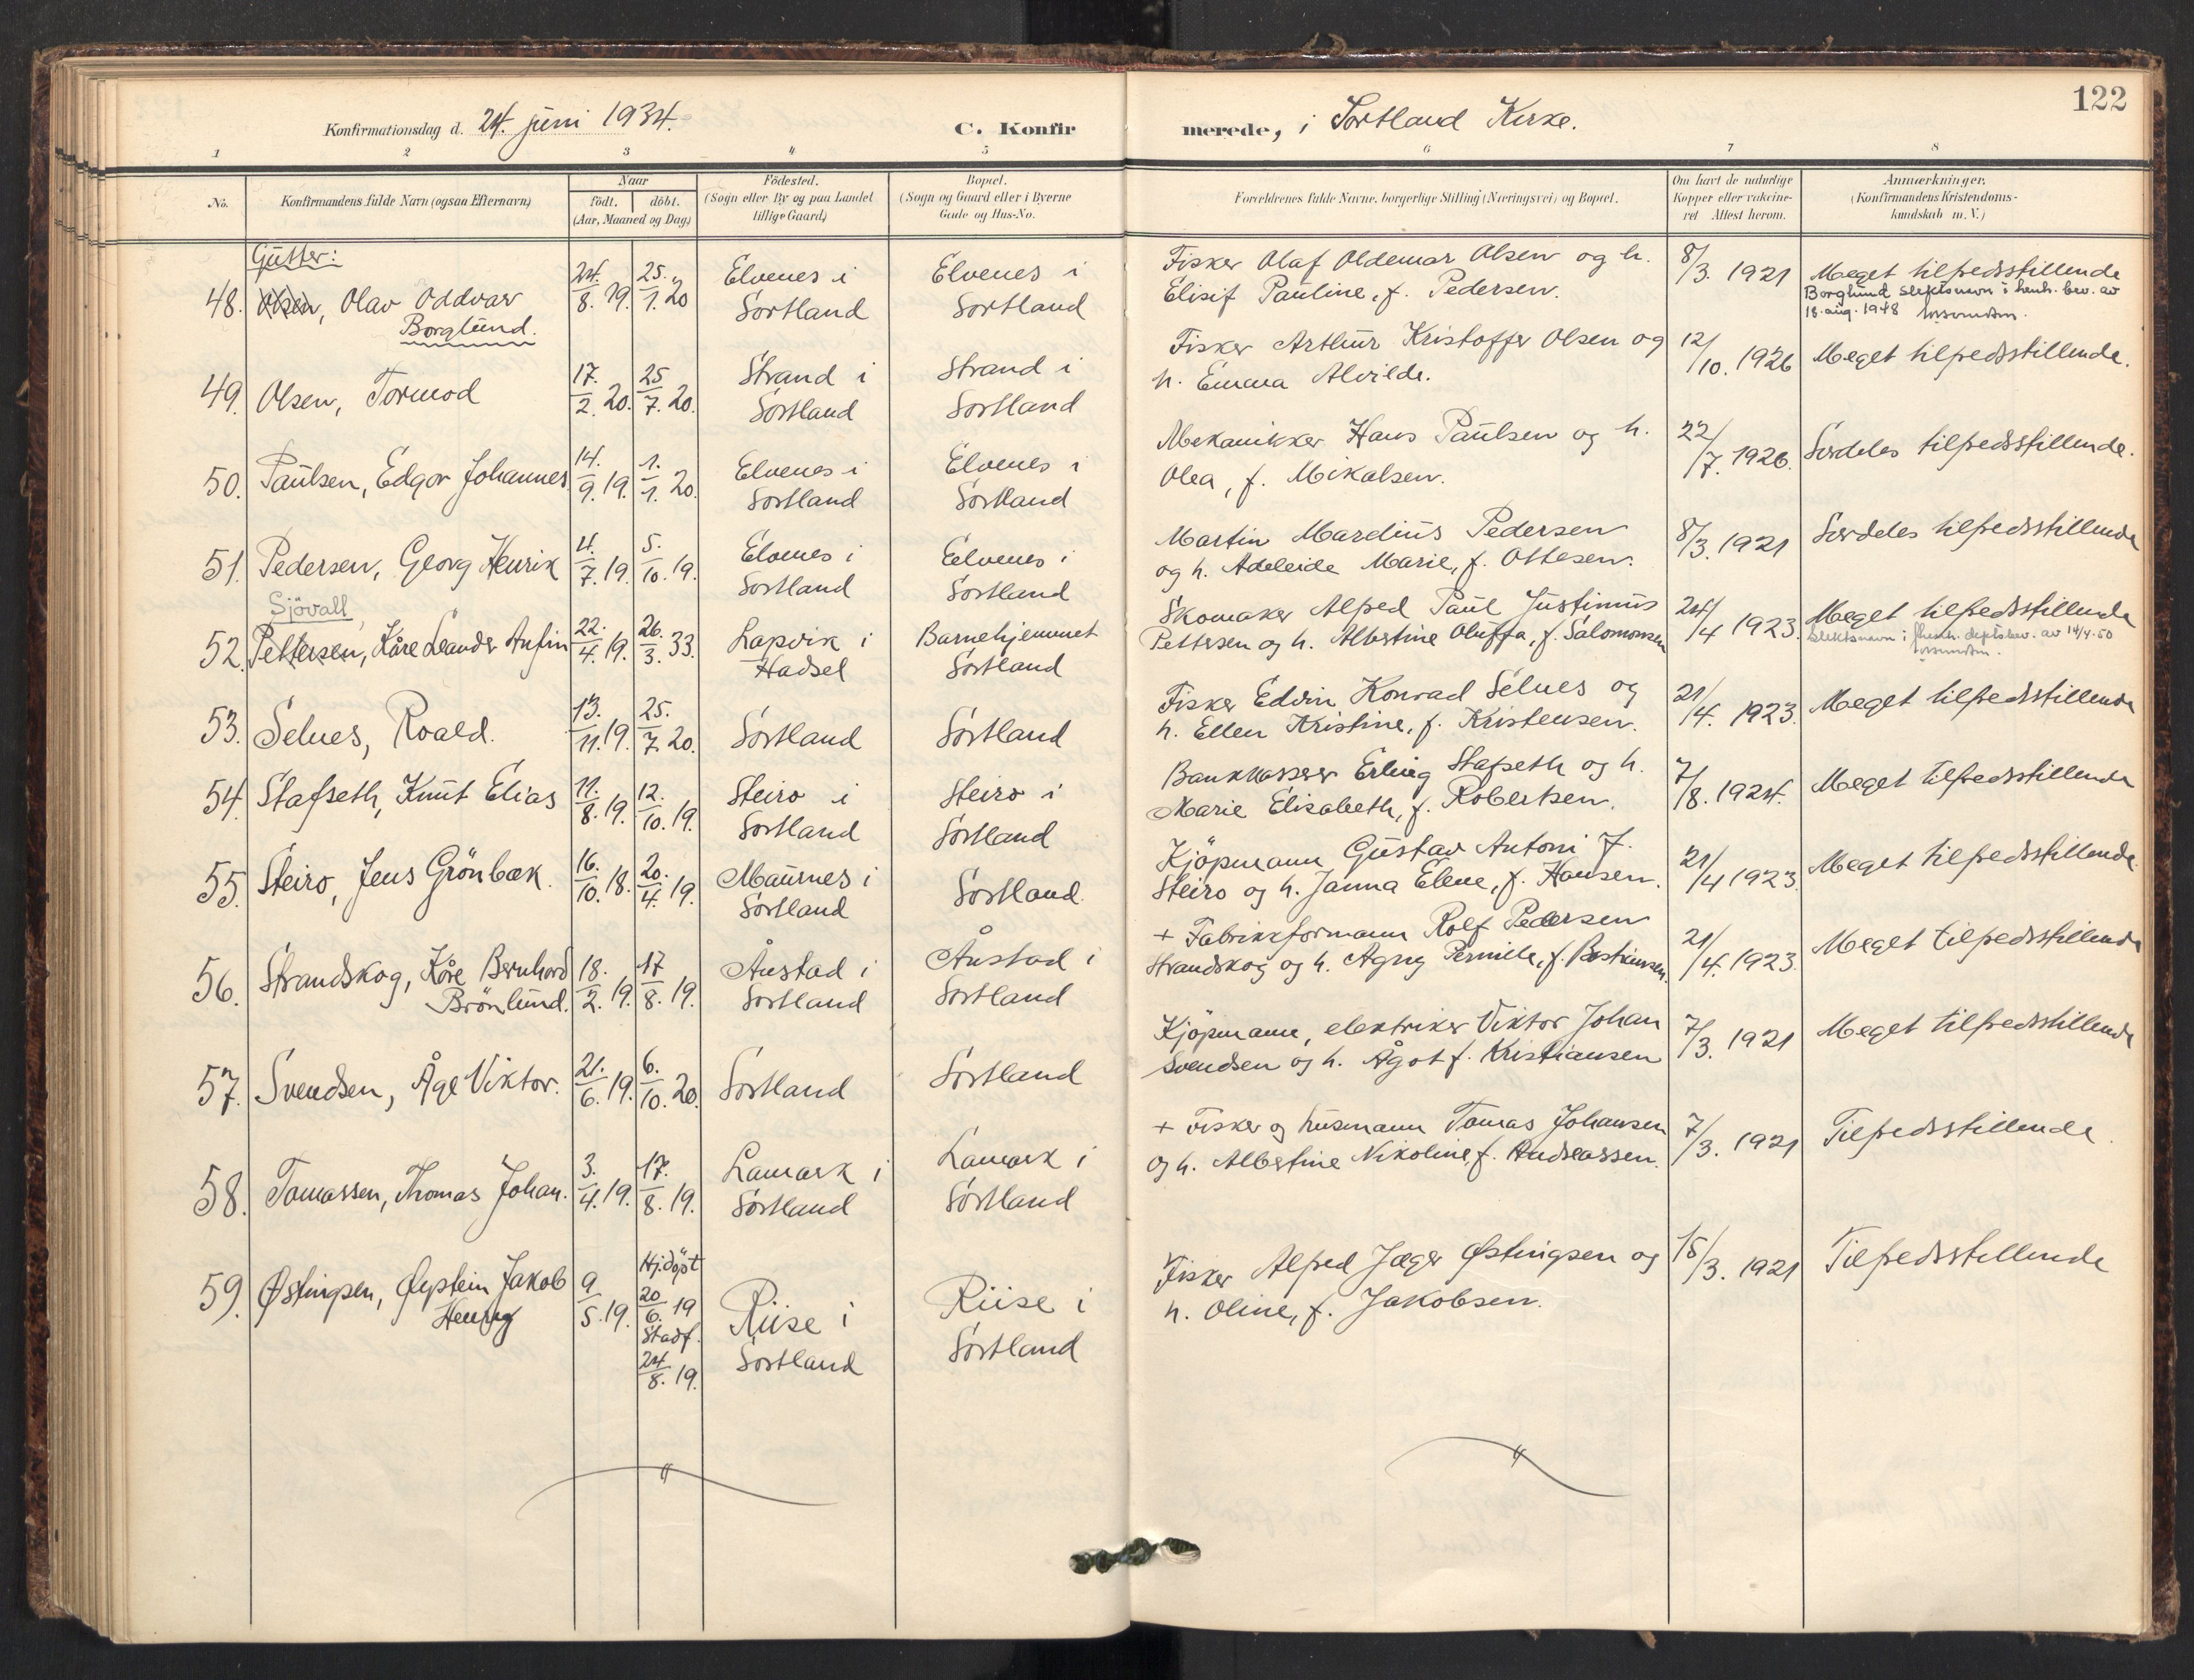 122
Konfirmationsdag d. 24. juni 1934.
C. Konfirmerede, i Sortland Kirke.
1 2 3 4 5 6 7 8
No.
Konfirmandens fulde Navn (ogsaa Efternavn)
Naar
födt. döbt.
(Aar, Maaned og Dag)
Födested.
(Sogn eller By og paa Landet
tillige Gaard)
Bopæl.
(Sogn og Gaard eller i Byerne
Gade og Hus-No.
Forældrenes fulde Navne, borgerlige Stilling (Næringsvei) og Bopæl.
Om havt de naturlige
Kopper eller vakcine-
ret Attest herom.
Anmærkninger.
(Konfirmandens Kristendoms-
kundskab m. V.)
Gutter:
48. Olsen, Olav Oddvar
Borglund.
24./8. 19. 25./1. 20
Elvenes i
Sortland
Elvenes i
Sortland
Fisker Olaf Oldemar Olsen og h.
Elisif Pauline, f. Pedersen.
8/3. 1921
Meget tilfredsstillende
Borglund slektsnavn i henh. bev. av
18. aug. 1948
49. Olsen, Tormod
17./2. 20. 25/7. 20.
Strand i
Sortland
Strand i
Sortland
Fisker Arthur Kristoffer Olsen og
h. Emma Alvilde.
12/10. 1926
Meget tilfredsstillende.
50. Paulsen, Edgar Johannes
14./9. 19. 1./1. 20.
Elvenes i
Sortland
Elvenes i
Sortland
Mekanikker Hans Paulsen og h.
Olea, f. Mikalsen.
22/7. 1926.
Særdeles tilfredsstillende.
51. Pedersen, Georg Henrik
4./7. 19. 5./10. 19.
Elvenes i
Sortland
Elvenes i
Sortland
Martin Mardius Pedersen
og h. Adeleide Marie, f. Ottesen.
8/3. 1921
Særdeles tilfredsstillende
Sjövall,
52. Pettersen, Kåre Leander Anfin
22./4. 19. 26./3. 33.
Lapvik i
Hadsel
Barnehjemmet
Sortland
Skomaker Alfred Paul Justinus
Pettersen og h. Albertine Oluffa, f. Salomonsen
24/4 1923.
Meget tilfredsstillende
Slektsnavn i henh. deptsbev. av 14/4.50
53. Selnes, Roald.
13./11. 19. 25./7. 20.
Sortland
Sortland
Fisker Edvin Konrad Selnes og
h. Ellen Kristine, f. Kristensen.
21/4. 1923.
Meget tilfredsstillende
54. Stafseth, Knut Elias
11./8. 19. 12./10. 19.
Steiro i
Sortland
Steiro i
Sortland
Bankkasserer Erling Stafseth og h.
Marie Elisabeth, f. Robertsen.
7/8. 1924.
Meget tilfredsstillende
55. Steiro, Jens Grönbæk.
16./10. 18. 20./4. 19.
Maurnes i
Sortland
Sortland
Kjöpmann Gustav Antoni J.
Steiro og h. Janna Elene, f. Hansen.
21/4 1923.
Meget tilfredsstillende.
56. Strandskog, Kåre Bernhard
Brönlund.
18./2. 19. 17/8. 19.
Åustad i
Sortland
Åustad i
Sortland
+ Fabrikkformann Rolf Pedersen
Strandskog og h. Agny Pernille, f. Bastiansen.
21/4. 1923.
Meget tilfredsstillende
57. Svendsen, Åge Viktor.
21./6. 19. 6./10. 20.
Sortland
Sortland
Kjöpmann, elektriker Viktor Johan
Svendsen og h. Ågot f. Kristiansen
7/3. 1921
Meget tilfredsstillende
58. Tomassen, Thomas Johan.
3./4. 19. 17./8. 19.
Lamark i
Sortland
Lamark i
Sortland
+ Fisker og husmann Tomas Johansen
og h. Albertine Nikoline, f. Andreassen.
7/3. 1921
Tilfredsstillende.
59. Østingsen, Øystein Jakob
Henry
9/5. 19. Hj.döpt
20/6. 19
Stadf.
24/8. 19.
Riise i
Sortland
Riise i
Sortland
Fisker Alfred Jæger Østingsen og
h. Oline, f. Jakobsen.
15/3. 1921
Tilfredsstillende